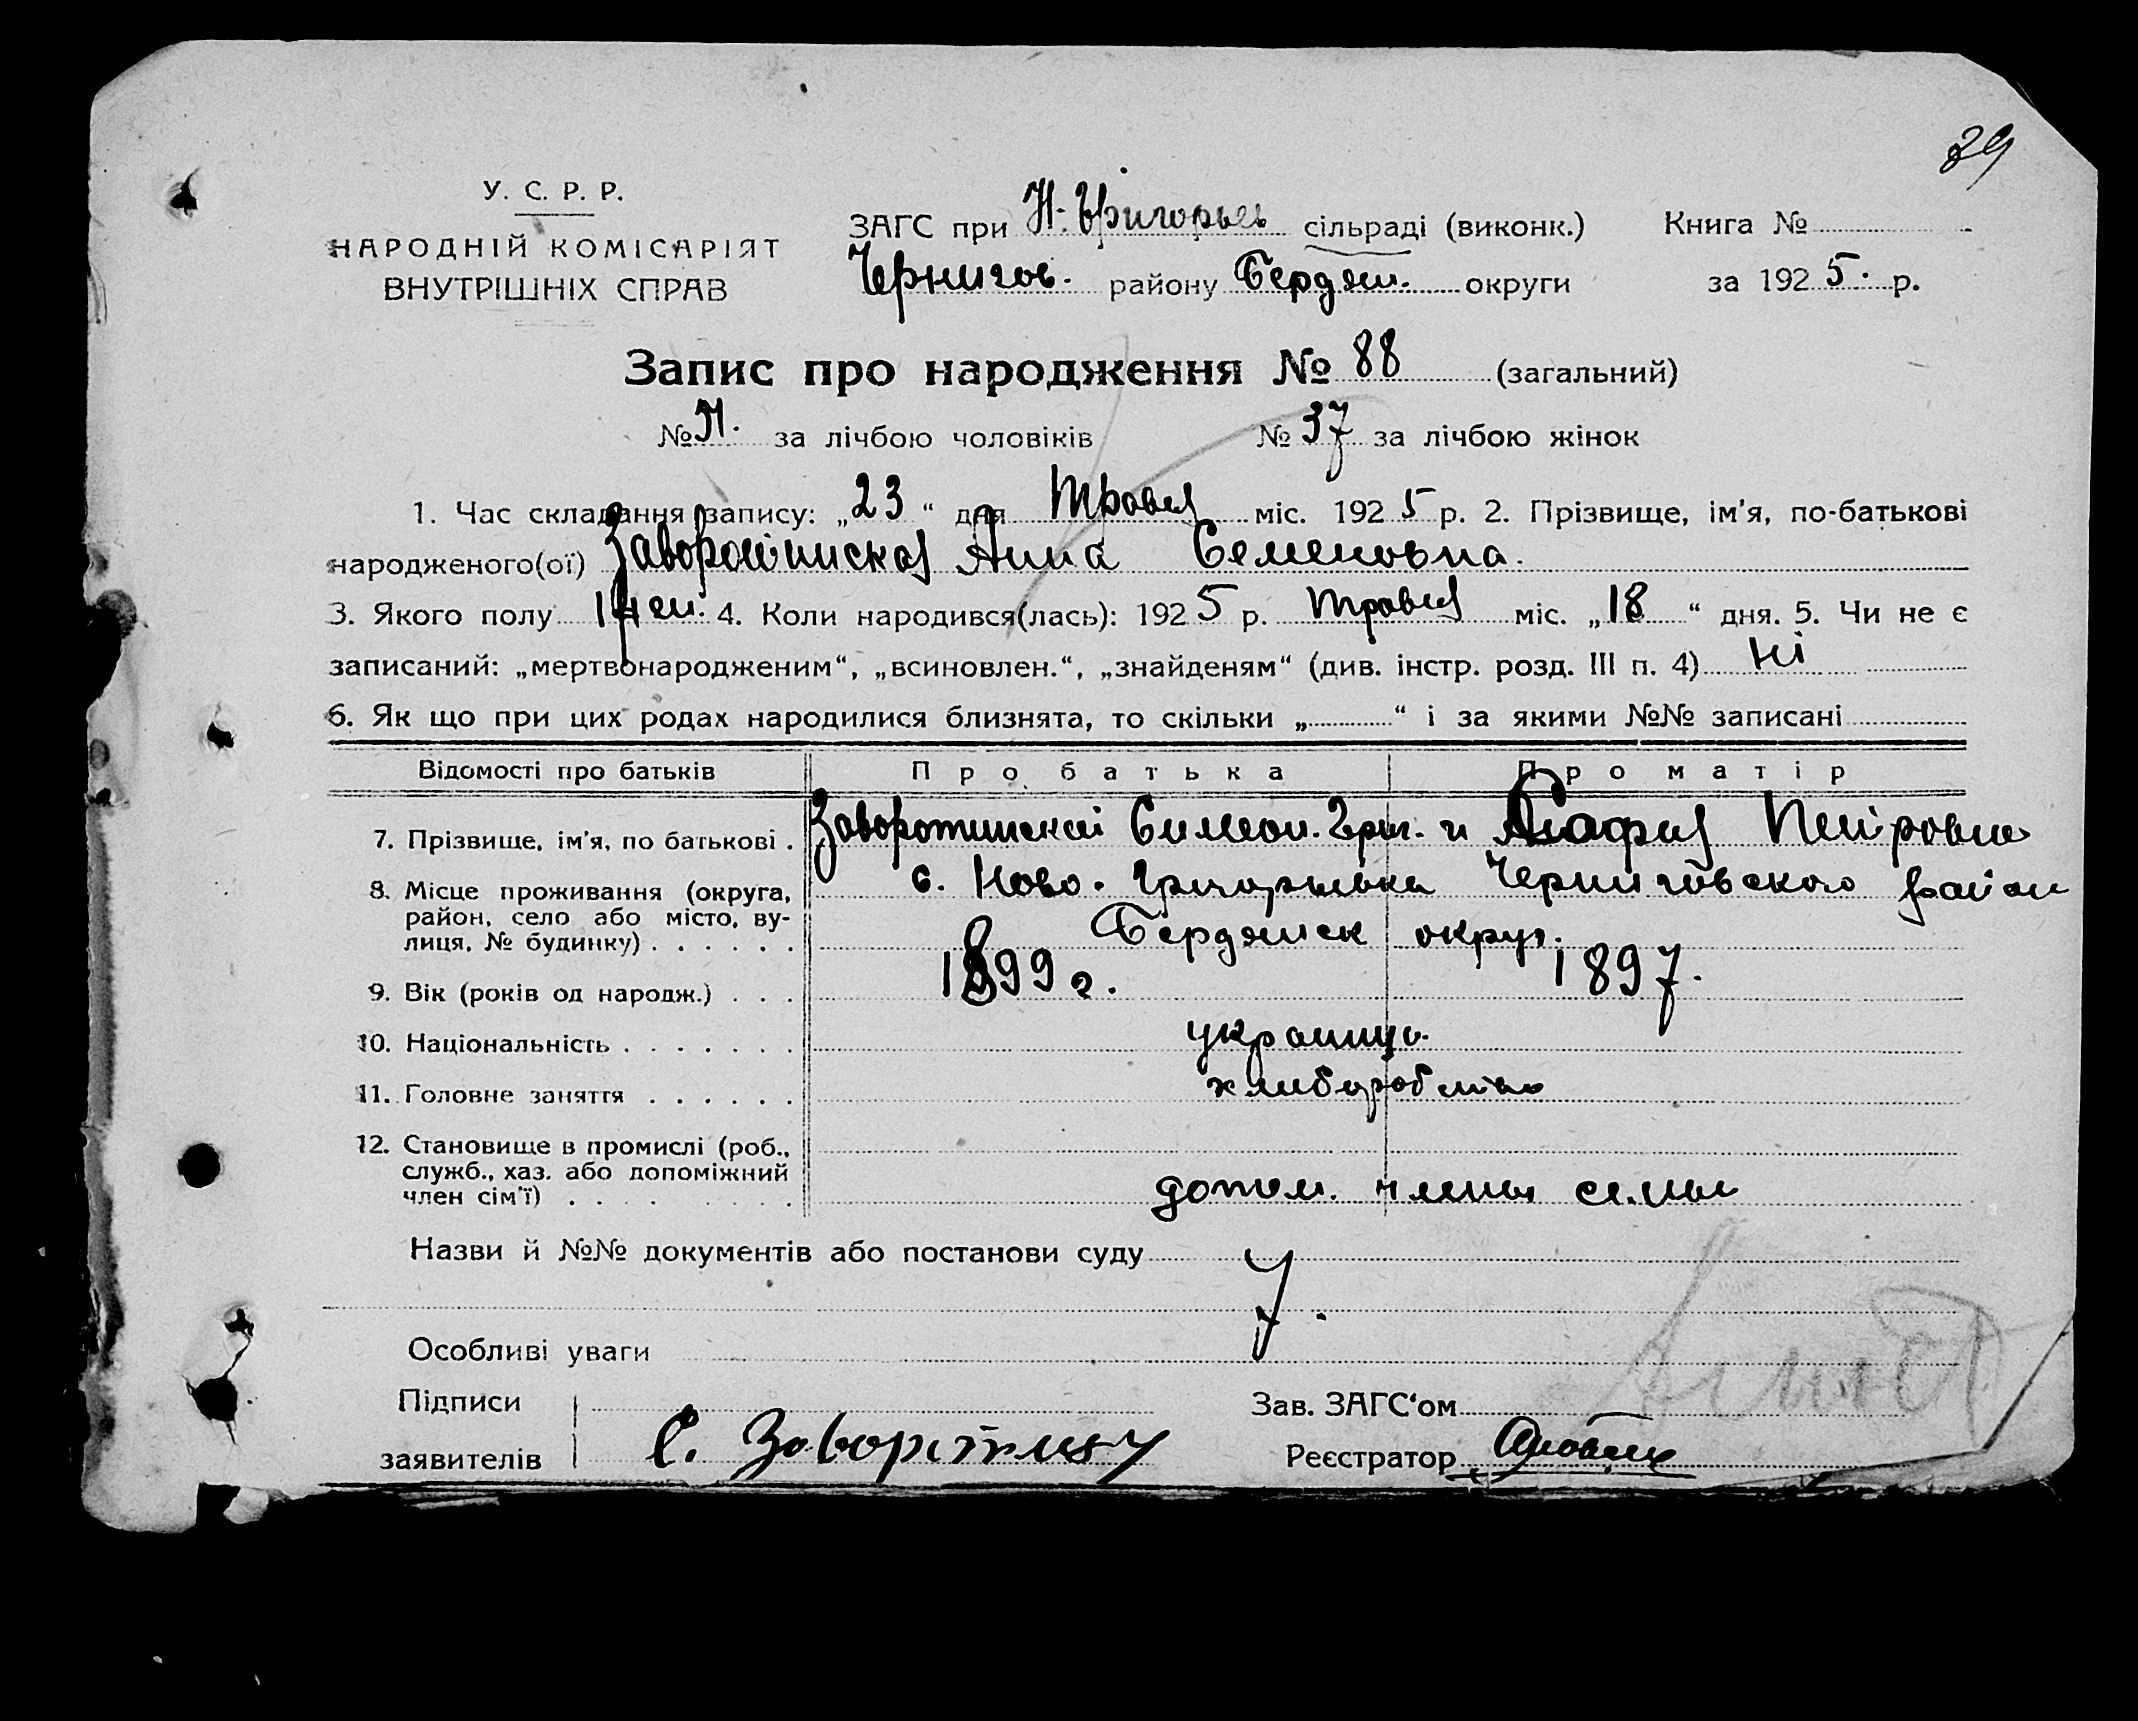 39
У. С. Р. Р.
НАРОДНІЙ КОМІСАРІЯТ
ВНУТРІШНІХ СПРАВ
ЗАГС при Н-Григорьев сільраді (виконк.) Книга №
Чернигов. району Бердян. округи за 1925. р.
Запис про народження № 88 (загальний)
№ за лічбою чоловіків № 37 за лічбою жінок
1. Час складання запису: „23“ дня Травня міс. 1925 р. 2. Прізвище, ім'я, по-батькові
народженого(ої) Заворотинская Анна Семеновна.
3. Якого полу жен. 4. Коли народився(лась): 1925 р. Травня міс. „18“ дня. 5. Чи не є
записаний: „мертвонародженим“, „всиновлен.“, „знайденям“ (див. інстр. розд. III п. 4) Ні
6. Як що при цих родах народилися близнята, то скільки „ “ і за якими №№ записані
Відомості про батьків Про батька Про матір
7. Прізвище, ім'я, по батькові . Заворотинский Симеон. Григ. и Агафия Петровна
8. Місце проживання (округа, с. Ново-Григорьевка Черниговского район
район, село або місто, ву-
лиця, № будинку) . . . . . . Бердянск округ.
9. Вік (років од народж.) . . . 1899 г. 1897.
10. Національність . . . . . . . украинцы
11. Головне заняття . . . . . . хлибороблтво
12. Становище в промислі (роб.,
служб., хаз. або допоміжний
член сім'ї) . . . . . . . допом. члены семьи
Назви й №№ документів або постанови суду
Особливі уваги
Підписи Зав. ЗАГС'ом
заявителів С. Заворотину Реєстратор